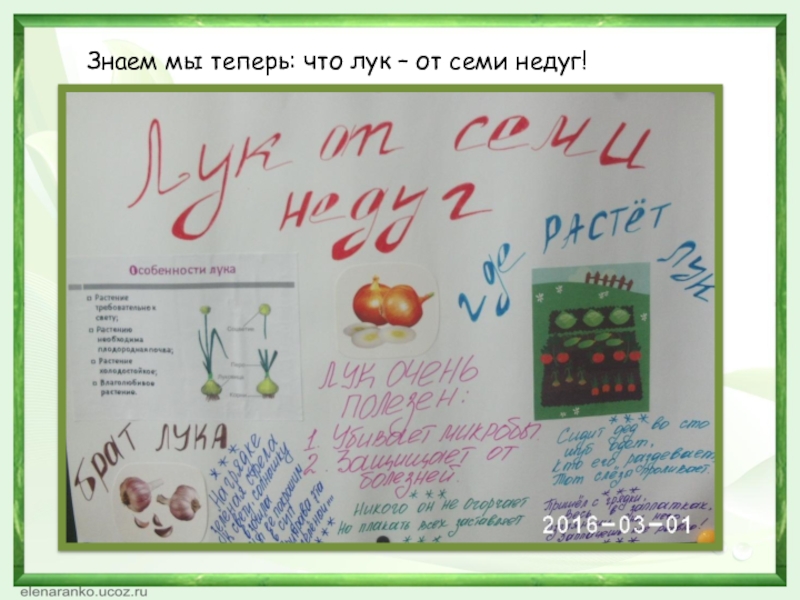 Знаем мы теперь: что лук – от семи недуг!
Лук от семи
недуг
где РАСТЁТ
ЛУК
Особенности лука
Растение
требовательно к
свету;
Растению
необходима
плодородная почва;
Растение
холодостойкое;
Влаголюбивое
растение.
ЛУК ОЧЕНЬ
ПОЛЕЗЕН:
1. Убивает микробы.
2. Защищает от
болезней.
***
Никого он не огорчает
Но плакать всех заставляет
***
БРАТ ЛУКА
***
На грядке
зелёная
к свету, солнышку
***
Сидит дед во сто
шуб одет,
кто его раздевает
Тот слёзы проливает.
***
Пришёл с грядки,
весь в заплатках,
***
2016-03-01
elenaranko.ucoz.ru